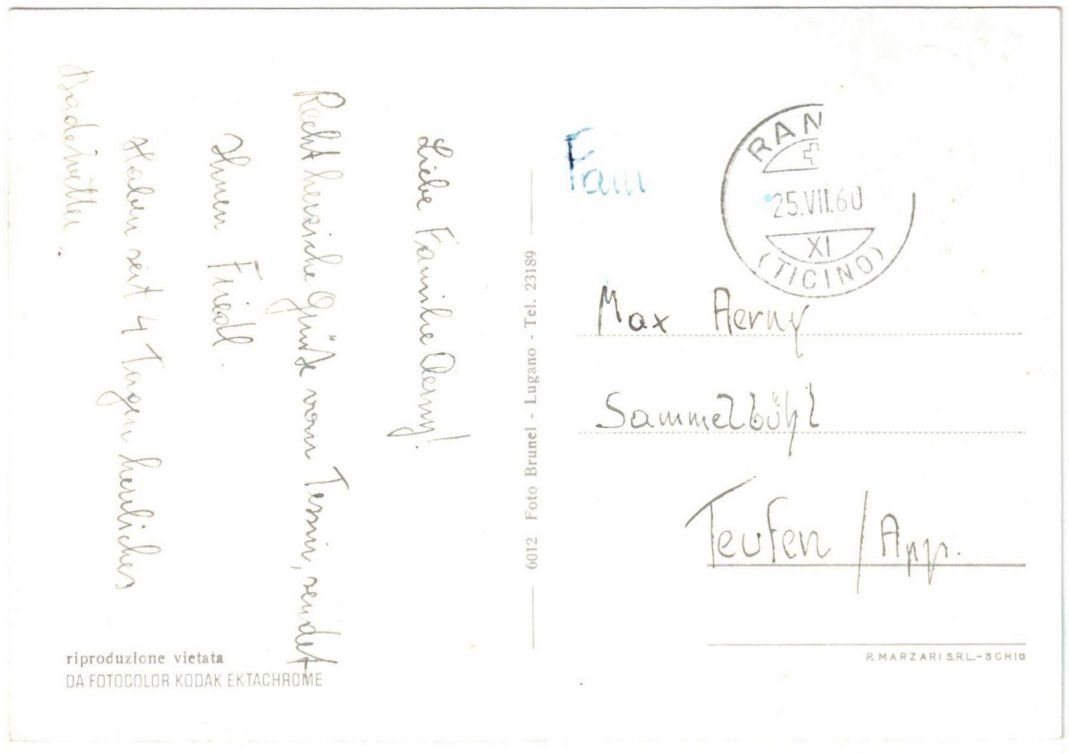 Liebe Familie Aerny!
Recht herzliche Grüße vom Tessin, sendet
Ihnen Friedl.
Haben seit 4 Tagen herrliches
Badewetter
riproduzione vietata
DA FOTOCOLOR KODAK EKTACHROME
6012 Foto Brunel - Lugano - Tel. 23189
RAN
25.VII.60
XI
(TICINO)
Fam
Max Aerny
Sammelbühl
Teufen / App.
P. MARZARI S.R.L.-SCHIO